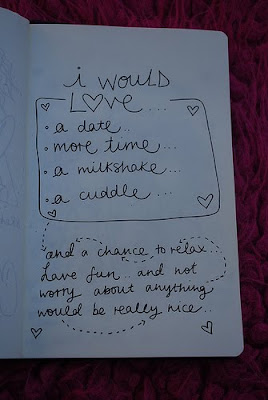 i WOULD
LOVE...
• a date..
• more time...
• a milkshake...
• a cuddle...
and a chance to relax..
have fun.. and not
worry about anything
would be really nice..